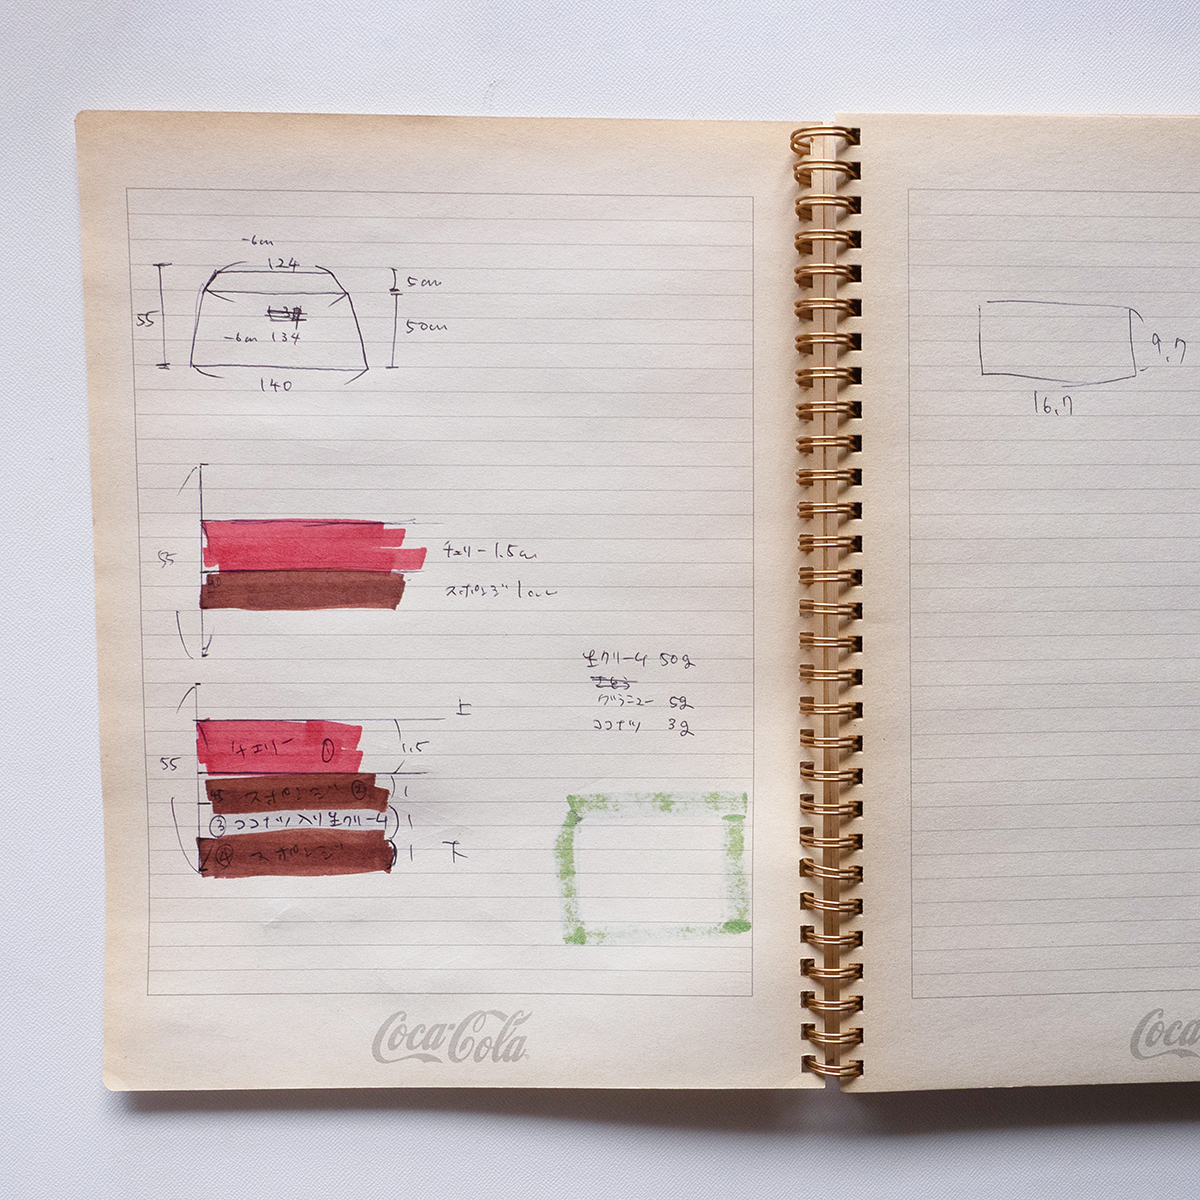 -6cm
124
5cm
55
50cm
-6cm 134
140
55
チェリー 1.5cm
スポンジ 1cm
生クリーム 50g
グラニュー 5g
ココナツ 3g
上
チェリー ①
1.5
55
スポンジ ②
1
③ ココナツ入り生クリーム
1
④ スポンジ
1
下
Coca-Cola
9.7
16.7
Coca